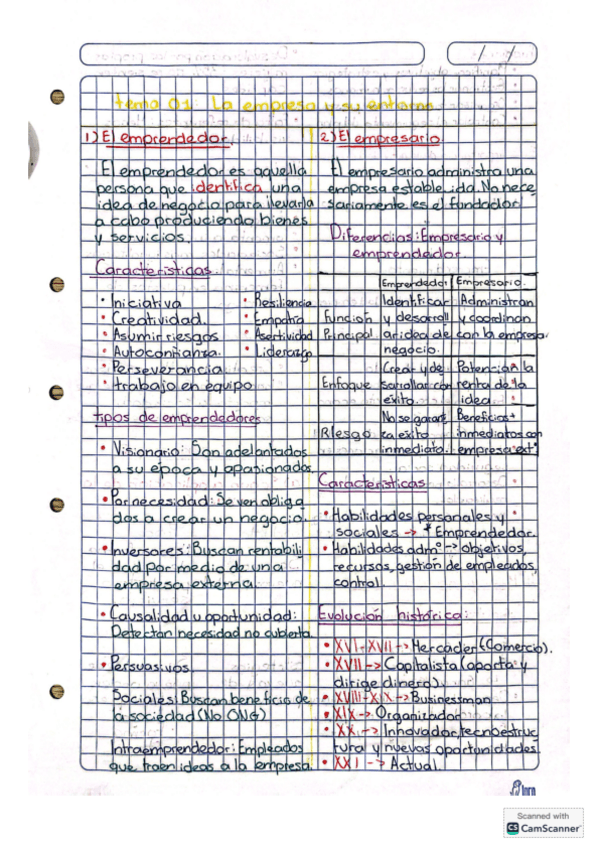 tema 01. La empresa y su entorno
1) El emprendedor.
El emprendedor es aquella
persona que identifica una
idea de negocio para llevarla
a cabo produciendo bienes
y servicios.
Características.
• Iniciativa
• Creatividad.
• Asumir riesgos
• Autoconfianza.
• Perseverancia
• trabajo en equipo
• Resiliencia
• Empatía
• Asertividad
• Liderazgo
tipos de emprendedores
• Visionario: Son adelantados
a su época y apasionados.
• Por necesidad: Se ven obliga
dos a crear un negocio.
• Inversores: Buscan rentabili
dad por medio de una
empresa externa.
• Causalidad u oportunidad:
Detectan necesidad no cubierta.
• Persuasivos.
Sociales: Buscan beneficio de
la sociedad (No ONG)
Intraemprendedor: Empleados
que traen ideas a la empresa.
2) El empresario
El empresario administra una
empresa establecida. No nece
sariamente es el fundador.
Diferencias: Empresario y
emprendedor.
Emprendedor Empresario.
Función Principal
Identificar
y desarroll
ar idea de
negocio.
Administran
y coordinan
con la empresa.
Enfoque
Crear y de
sarrollar con
éxito.
Potencian la
renta de la
idea.
Riesgo
No se garant
za éxito
inmediato.
Beneficios +
inmediatos con
empresa ext
Características
• Habilidades personales y
sociales → * Emprendedor.
• Habilidades admº → objetivos,
recursos, gestión de empleados,
control.
Evolución histórica:
• XVI-XVII → Mercader (Comercio).
• XVII → Capitalista (aporta y
dirige dinero).
• XVIII-XIX → Businessman
• XIX → Organizador
• XX → Innovador, tecnoestruc
tura y nuevas oportunidades
• XXI → Actual.
Scanned with
CS CamScanner